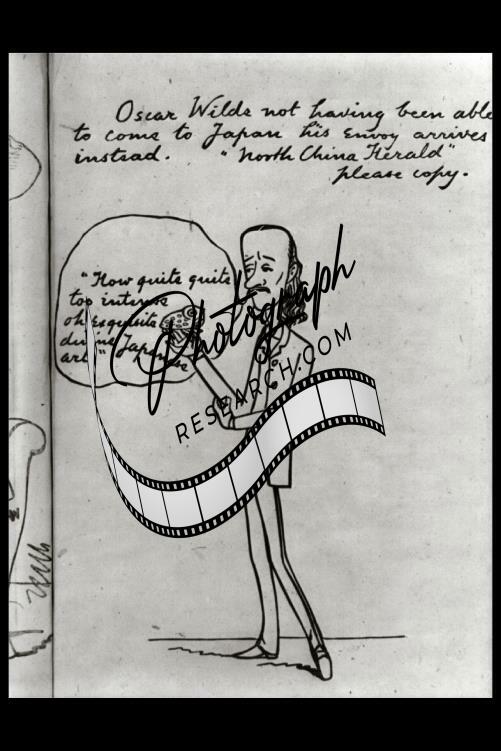 Oscar Wilde not having been able
to come to Japan his envoy arrives
instead. "North China Herald"
please copy.
"How quite quite
too intense
oh exquisite
divine Japanese
art"
Photograph
RESEARCH.COM